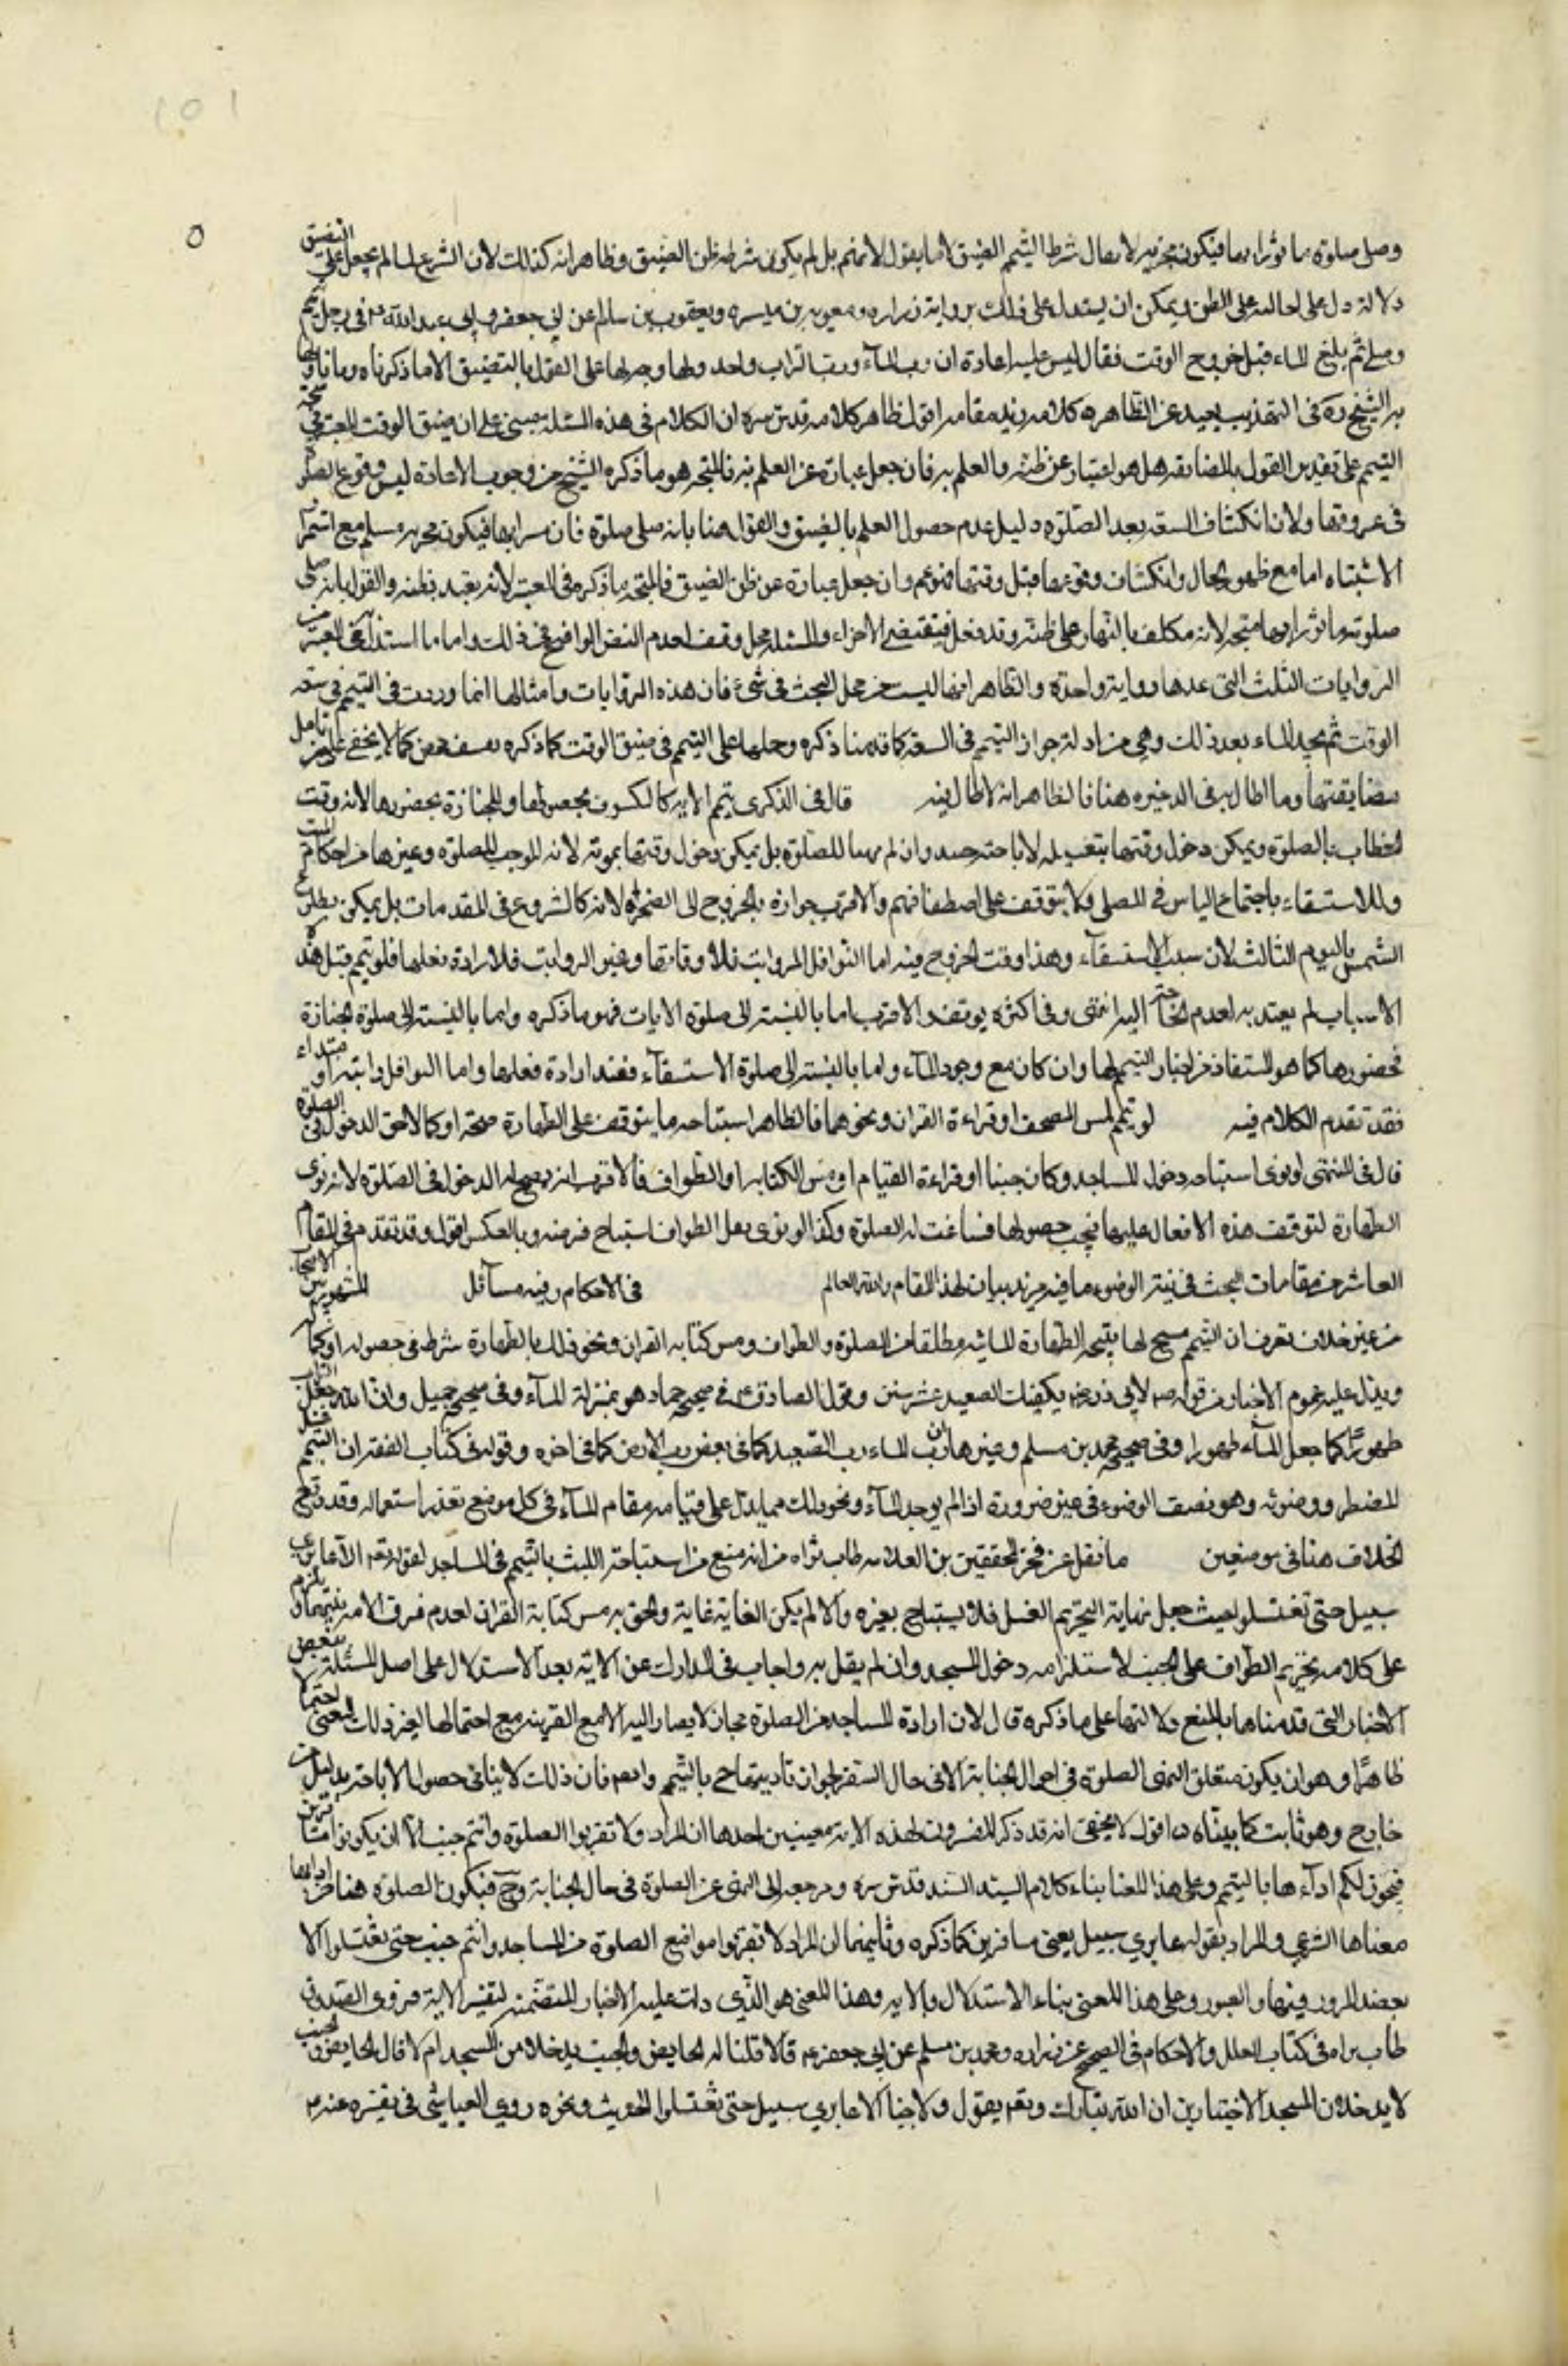 وصلى صلوة مأمورا بها فيكون مجزيه لا يقال شرط التيمم الضيق لانا نقول لا نمنع بل لم يكون شرطه ظن الضيق وظاهر انه كذلك لان الشرع لما لم يجعل على التضيق
دلالة دل على احالته على الظن ويمكن ان يستدل على ذلك برواية زراره ومعويه بن ميسره ويعقوب بن سالم عن ابي جعفر وابي عبد الله ع في رجل تيمم
وصلى ثم بلغ الماء قبل خروج الوقت فقال ليس عليه اعادة ان رب الماء ورب التراب واحد ولا وجه لها على القول بالتضييق الا ما ذكرناه وما تاولها
به الشيخ ره في التهذيب بعيد عن الظاهر ه كلامه زيد مقامه اقول ظاهر كلامه قدس سره ان الكلام في هذه المسئلة مبني على ان ضيق الوقت المعتبر في صحة
التيمم على تقدير القول بالمضايقه هل هو اعتبار عن ظنه والعلم به فان جعل عبارة عن العلم به فالمتجه هو ما ذكره الشيخ من وجوب الاعادة ليس وقوع الصلوة
في غير وقتها ولان انكشاف السعة بعد الصلوة دليل عدم حصول العلم بالضيق والقول هنا بانه صلى صلوة مأمورا بها فيكون مجزيه مسلم مع استمرار
الاشتباه اما مع ظهور الحال وانكشاف وقوعها قبل وقتها فممنوع وان جعل عبارة عن ظن الضيق فالمتجه ما ذكره في المعتبر لانه تعبد بظنه والقول بانه صلى
صلوته مأمورا بها متجه لانه مكلف بالبناء على ظنه وقد فعل فيقتضي الاجزاء والمسئلة محل وقف لعدم النص الواضح في ذلك واما ما استند اليه في المعتبر من
الروايات الثلث التي عدها رواية واحدة والظاهر انها ليست من محل البحث في شيء فان هذه الروايات وامثالها انما وردت في التيمم في سعة
الوقت ثم يجد الماء بعد ذلك وهي من ادلة جواز التيمم في السعة كما قدمنا ذكره وحملها على التيمم في ضيق الوقت كما ذكره تعسف محض كما لا يخفى على من تامل
مضايقتها وما اطال به في الذخيره هنا فالظاهر انه لا طائل فيه قال في الذكرى تيمم الايه كالكسوف بحصولها وللجنازة بحضورها لانه وقت
الخطاب بالصلوة ويمكن دخول وقتها بتغسيله لاباحته حينئذ وان لم يهيأ للصلوة بل يمكن دخول وقتها بموته لانه الموجب للصلوة وغيرها من احكام الميت
وللاستسقاء باجتماع الناس في المصلى ولا يتوقف على اصطفافهم والاقرب جوازه بالخروج الى الصحراء لانه كالشروع في المقدمات بل يمكن بطلوع
الشمس باليوم الثالث لان سبب الاستسقاء وهذا وقت الخروج فيه اما النوافل الرواتب فلاوقاتها وغير الرواتب فلارادة فعلها فلو تيمم قبل هذه
الاسباب لم يعتد به لعدم الحاجة اليه انتهى وفي اكثره يوقف والاقرب اما بالنسبة الى صلوة الايات فهو ما ذكره واما بالنسبة الى صلوة الجنازة
فحضورها كما هو المستفاد من اخبار التيمم لها وان كان مع وجود الماء واما بالنسبة الى صلوة الاستسقاء فعند ارادة فعلها واما النوافل راتبة او مبتداء
فقد تقدم الكلام فيه لو تيمم لمس المصحف او قراءة القران ونحوهما فالظاهر استباحة ما يتوقف على الطهارة صحة او كمالا حتى الدخول في الصلوة
قال في المنتهى لو نوى استباحة دخول المساجد وكان جنبا او قراءة العزائم او مس الكتابه او الطواف فالاقرب انه يصح له الدخول في الصلوة لانه نوى
الطهارة لتوقف هذه الافعال عليها فيجب حصولها فساغت له الصلوة وكذا لو نوى بفعل الطواف استباح فرضه وبالعكس اقول وقد تقدم في المقام
العاشر من مقامات البحث في نية الوضوء ما فيه مزيد بيان لهذا المقام والله العالم في الاحكام وفيه مسائل المشهور بين الاصحاب
من غير خلاف نعرف ان التيمم مبيح لما تبيحه الطهارة المائيه مطلقا من الصلوة والطواف ومس كتابه القران ونحو ذلك مما الطهارة شرط في حصوله او كماله
ويدل عليه عموم الاخبار من قوله ص لابي ذر رض يكفيك الصعيد عشر سنين وقول الصادق ع في صحيح حماد هو بمنزلة الماء وفي صحيح جميل وان الله جعل التراب
طهورا كما جعل الماء طهورا وفي صحيح محمد بن مسلم وغيرها ان رب الماء رب الصعيد كما في بعض ورب الارض كما في اخره وقوله في كتاب الفقه ان التيمم غسل
المضطر ووضوئه وهو نصف الوضوء في غير ضرورة اذا لم يوجد الماء ونحو ذلك مما يدل على قيامه مقام الماء في كل موضع تعذر استعماله وقد وقع
الخلاف هنا في موضعين ما نقل عن فخر المحققين بن العلامه طاب ثراه من انه منع من استباحة اللبث بالتيمم في المساجد لقوله تعم الا عابري
سبيل حتى تغتسلوا حيث جعل نهاية التحريم الغسل فلا يستباح بغيره والا لم يكن الغاية غاية والحق به مس كتابة القران لعدم فرق الامه بينهما ويلزم
على كلامه تحريم الطواف على الجنب لاستلزامه دخول المسجد وان لم يقل به واجاب في المدارك عن الاية بعد الاستدلال على اصل المسئلة ببعض
الاخبار التي قدمناها بالمنع ولالتها على ما ذكره قال لان ارادة المساجد من الصلوة مجاز لا يصار اليه الا مع القرينه مع احتمالها لغير ذلك المعنى احتمالا
ظاهرا وهو ان يكون متعلق النهي الصلوة في احوال الجنابة الا في حال السفر لجواز تاديتها ح بالتيمم وايضا فان ذلك لا ينافي حصول الاباحة بدليل من
خارج وهو ثابت كما بيناه ه اقول لا يخفى انه قد ذكر المفسرون لهذه الاية معنيين احدها ان المراد ولا تقربوا الصلوة وانتم جنب الا ان يكونوا مسافرين
فيجوز لكم اداءها بالتيمم وعلى هذا المعنا بناء كلام السيد السند قدس سره ومرجعه الى النهي عن الصلوة في حال الجنابة وح فيكون الصلوة هنا مرادا بها
معناها الشرعي والمراد بقوله عابري سبيل يعني مسافرين كما ذكره وثانيهما ان المراد لا تقربوا مواضع الصلوة من المساجد وانتم جنب حتى تغتسلوا الا
بقصد المرور فيها والعبور وعلى هذا المعنى بناء الاستدلال بالايه وهذا المعنى هو الذي دلت عليه الاخبار المتضمنه لتفسير الاية فروى الصدوق
طاب ثراه في كتاب العلل والاحكام في الصحيح عن زراره ومحمد بن مسلم عن ابي جعفر ع قالا قلنا له الحايض والجنب يدخلان المسجد ام لا قال الحايض والجنب
لا يدخلان المسجد الا مجتازين ان الله تبارك وتعم يقول ولا جنبا الا عابري سبيل حتى تغتسلوا الحديث ونحوه روى العياشي في تفسيره عنه ع